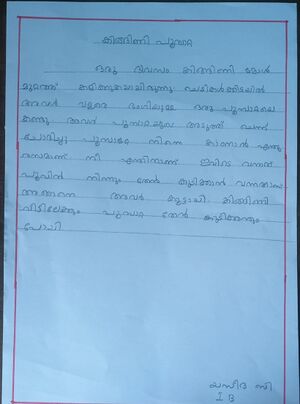 കിങ്ങിണി പൂമ്പാറ്റ
ഒരു ദിവസം കിങ്ങിണി മോൾ
മുറ്റത്ത് കളിക്കുകയായിരുന്നു ചെടികൾക്കിടയിൽ
അവൾ വളരെ ഭംഗിയുള്ള ഒരു പൂമ്പാറ്റയെ
കണ്ടു അവൾ പൂമ്പാറ്റയുടെ അടുത്ത് ചെന്ന്
ചോദിച്ചു പൂമ്പാറ്റേ നിന്നെ കാണാൻ എന്തു
രസമാണ് നീ എന്തിനാണ് ഇവിടെ വന്നത്
പൂവിൽ നിന്നും തേൻ കുടിക്കാൻ വന്നതാണ്
അങ്ങനെ അവർ കൂട്ടായി കിങ്ങിണി
വീട്ടിലേക്കും പൂമ്പാറ്റ തേൻ കുടിക്കാനും
പോയി
യസീദ സി
I B